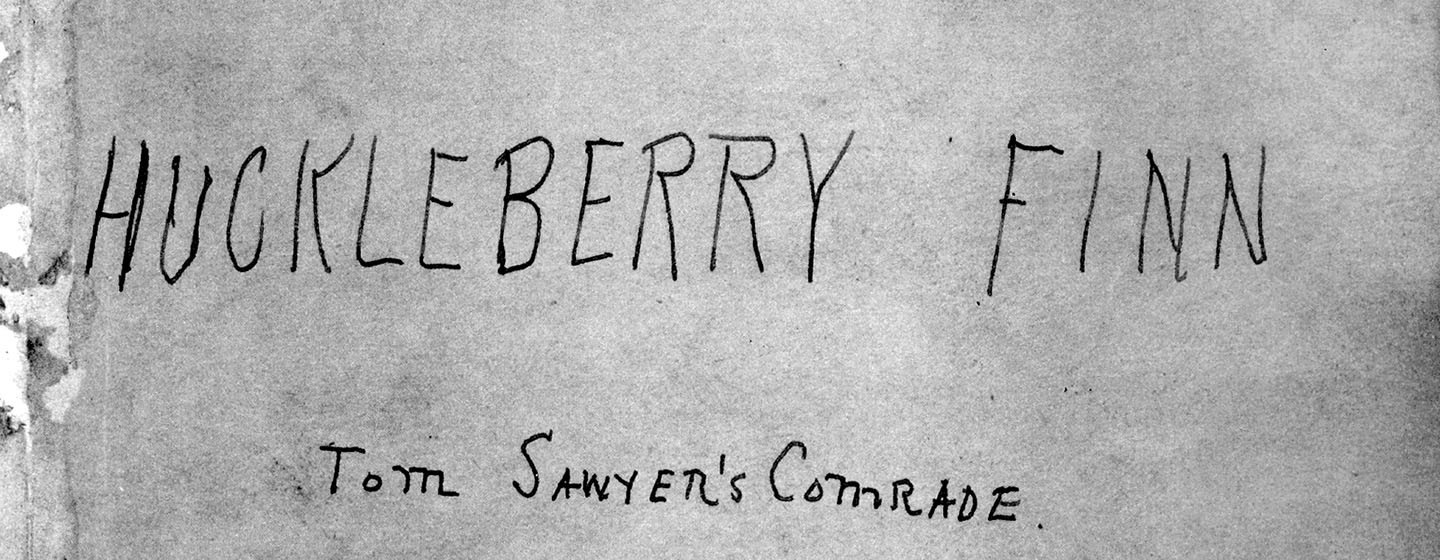 HUCKLEBERRY FINN
Tom SAWYER's ComRADE.